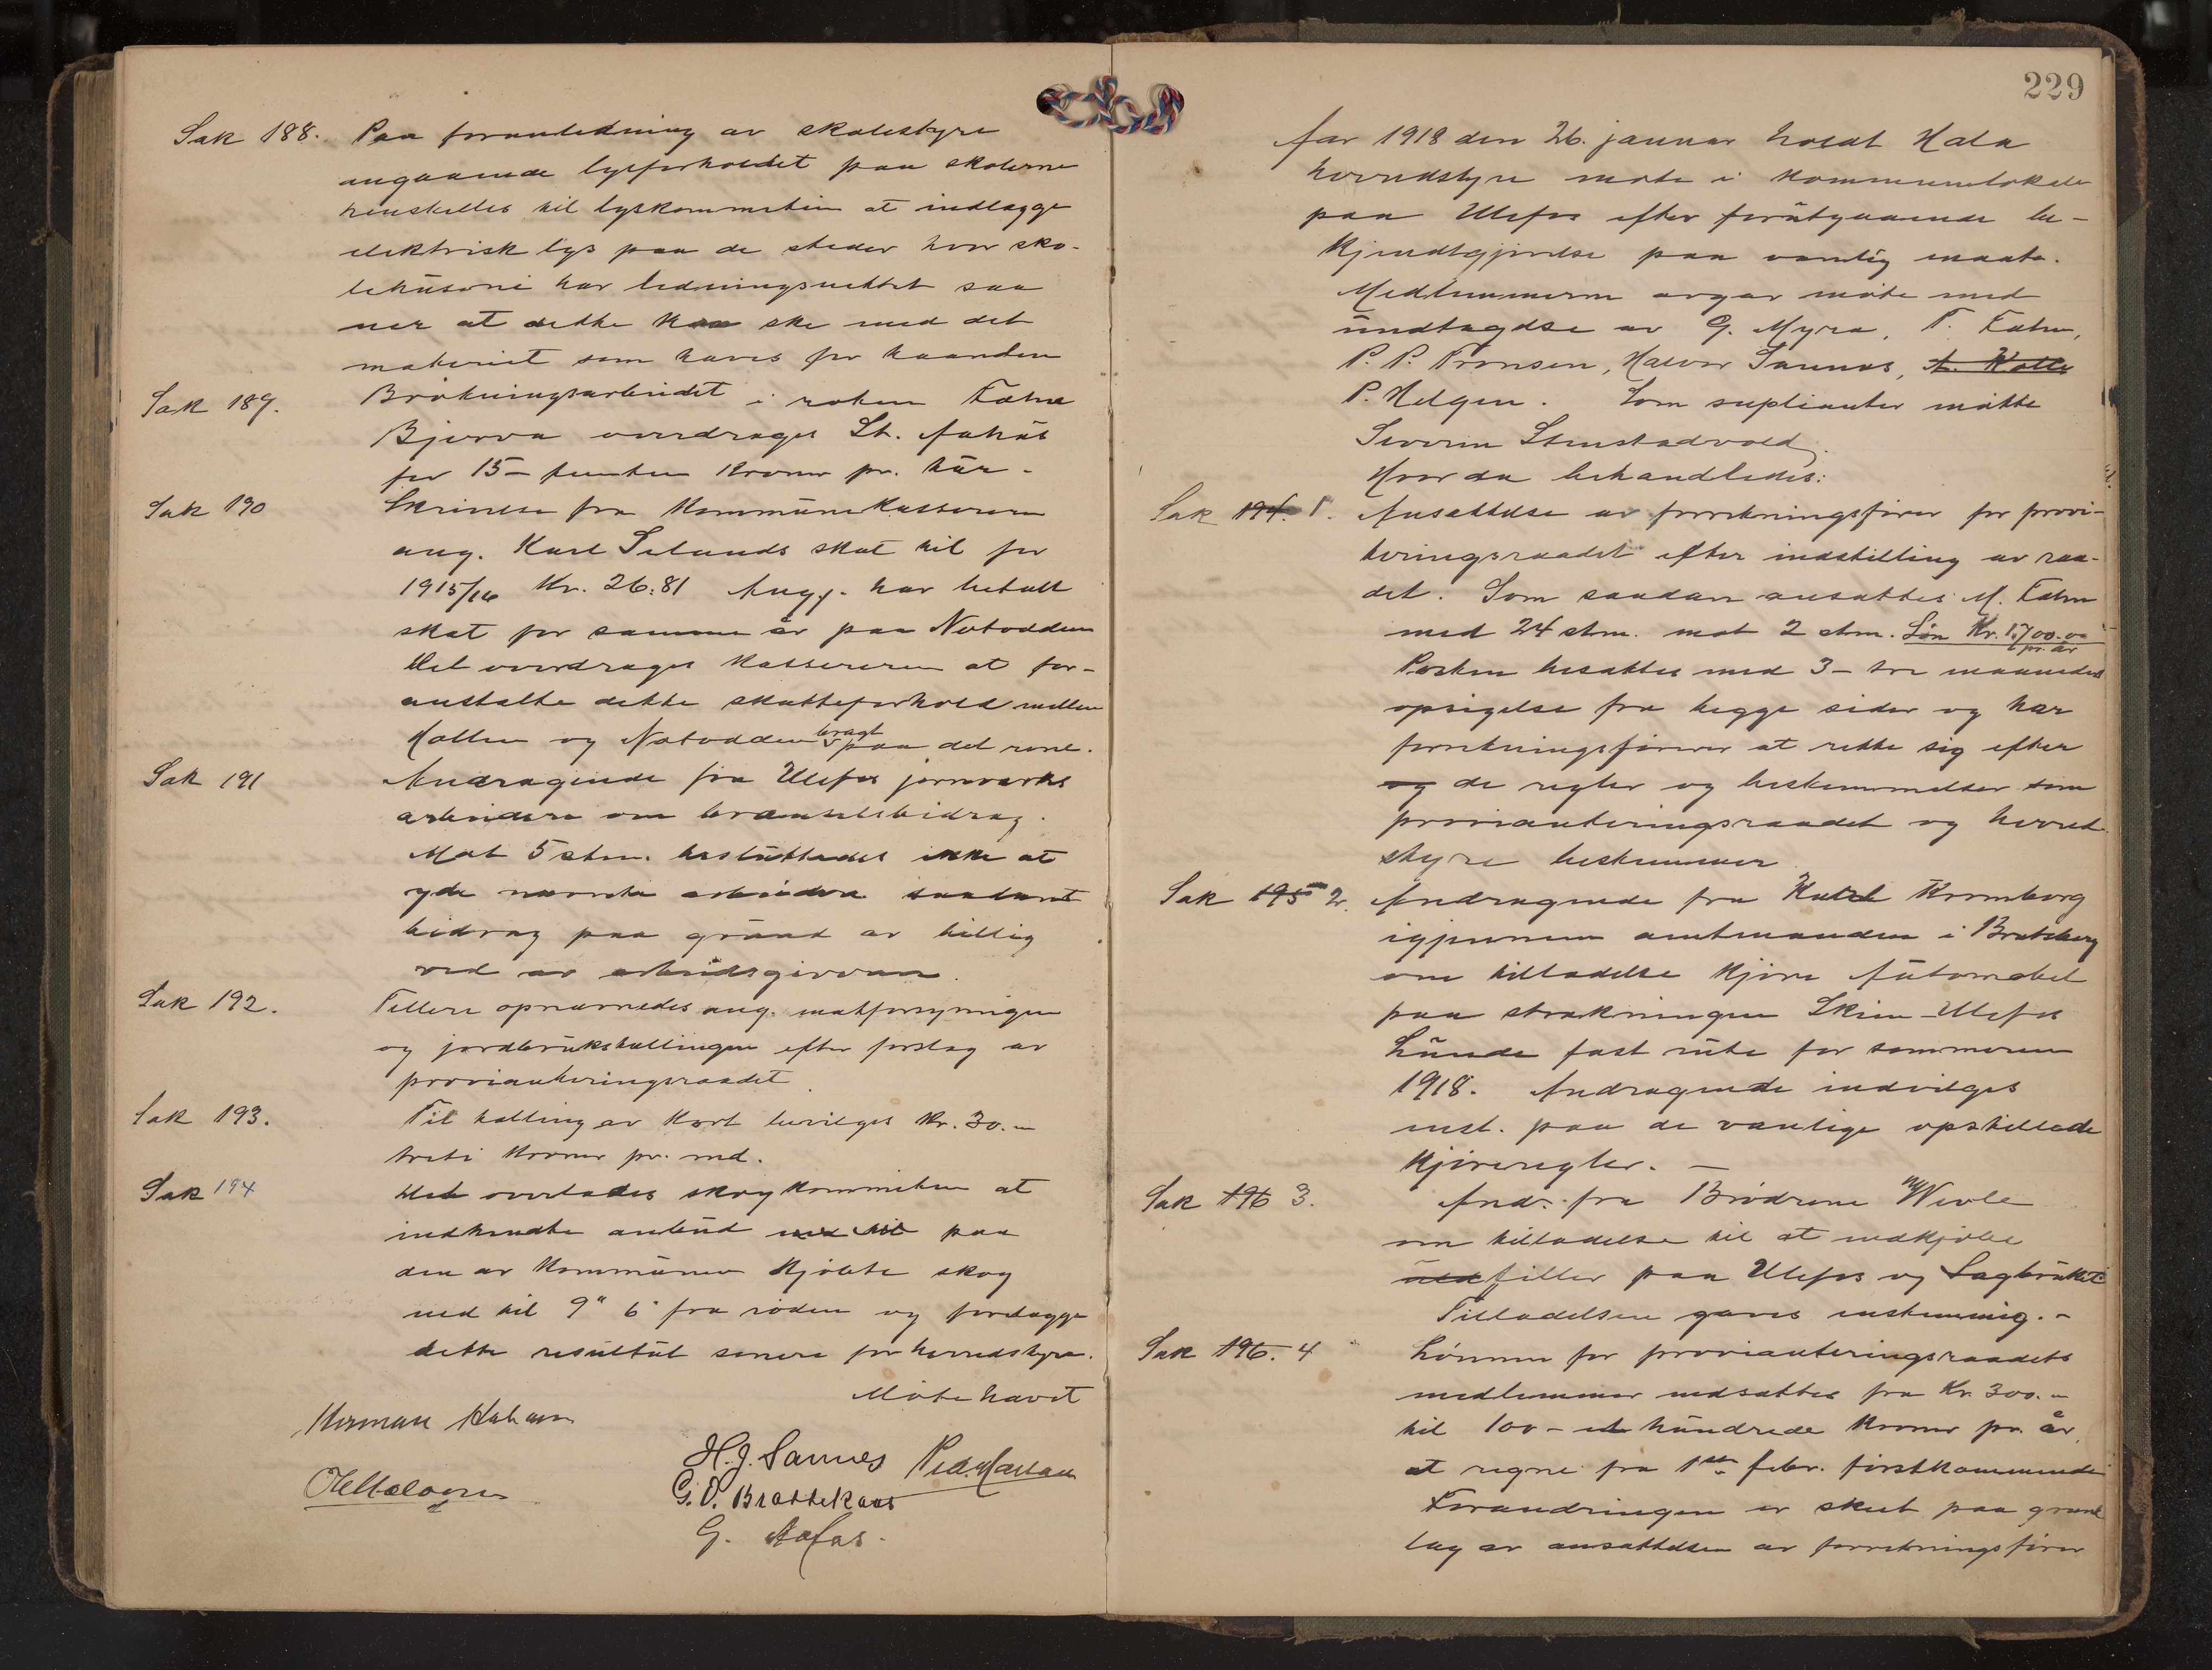 Sak 188. Paa foranledning av skolestyre
angaaende lysforholdet paa skolerne
henstilles til lyskommeteen at indlægge
elektrisk lys paa de steder hvor sko-
lehusene har ledningsnettet saa
nær at dette kan ske med det
materiel som haves for haanden
Sak 189. Brøitningsarbeidet i roten Fæhn
Bjerva overdrages St. Aahus
for 15- femten kroner pr. tur.
Sak 190 Skrivelse fra Kommunekassereren
ang. Karl Selands skat til for
1915/16 Kr. 26.81 Angj. har betalt
skat for samme år paa Notodden
Det overdrages Kassereren at for-
anstalte dette skatteforhold mellem
Hollen og Notodden bragt paa det rene.
Sak 191 Andragende fra Ulefos jernverks
arbeidere om brændselsbidrag.
Mot 5 stm. besluttedes ikke at
yde nævnte arbeidere saadant
bidrag paa grund av billig
ved av arbeidsgiveren.
Sak 192. Tellere opnævnedes ang. matforsyningen
og jordbrukstællingen efter forslag av
provianteringsraadet.
Sak 193. Til tælling av Kort bevilges Kr. 30.-
treti kroner pr. md.
Sak 194 Det overlades skogkommiteen at
indhendte anbud ned til paa
den av Kommunen kjøbte skog
ned til 9" 6" fra roden og forelægge
dette resultat senere for herredstyre.
Møte hævet
Herman
H. J. Sannes
G. O. Brattekaas
G. Aafos.
229
Aar 1918 den 26. januar holdt Holla
herredstyre møte i Kommunelokale
paa Ulefos efter forutgaaende be-
kjendtgjørelse paa vanlig maate.
Medlemmerne avgav møte med
undtagelse av G. Myra, T. Fæhn,
P. P. Tronsen, Halvor Sannes, A. Kolle
P. Helgen. Som suplianter møtte
Severin Stenstadvold.
Hvor da behandledes:
Sak 194. 1. Ansættelse av forretningsfører for provi-
teringsraadet efter indstilling av raa-
det. Som saadan ansattes M. Fæhn
med 24 stm. mot 2 stm. Løn Kr. 1700.00
pr. år
Posten besættes med 3- tre maaneders
opsigelse fra begge sider og har
forretningsfører at rette sig efter
og de regler og bestemmelser som
provianteringsraadet og herred
styre bestemmer
Sak 195 2. Andragende fra Kromborg
igjennem amtmanden i Bratsberg
om tilladelse kjøre Automobel
paa strækningen Skien-Ulefos
Lunde fast rute for sommeren
1918. Andragende indvilges
enst. paa de vanlige opstillede
kjøreregler. -
Sak 196 3. And. fra Brødrene Wevle
om tilladelse til at nedkjøle
uld filler paa Ulefos og Sagbruket
Tilladelsen gaves enstemmig. -
Sak 196. 4 Lønnen for provianteringsraadets
medlemmer nedsættes fra Kr. 300.-
til 100- et hundrede kroner pr. år,
at regne fra 1ste febr. førstkommende
Forandringen er skeet paa grund
lag av ansættelsen av forretningsfører